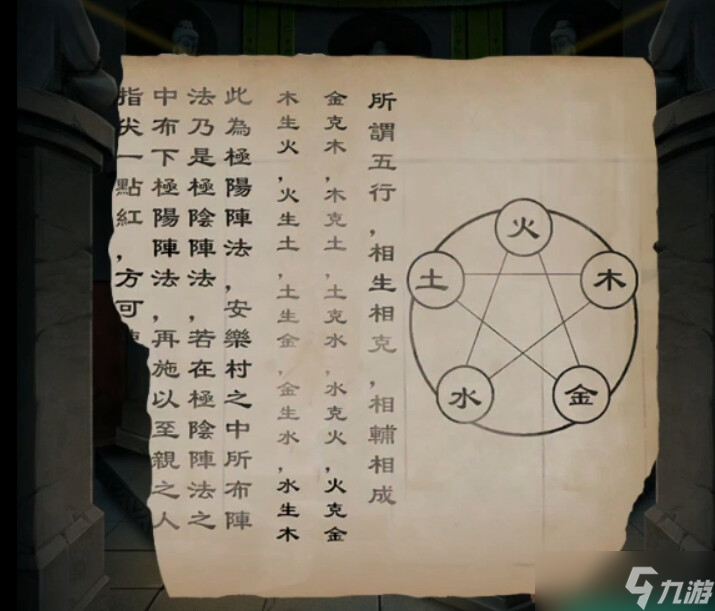 所謂五行，相生相克，相輔相成
金克木，木克土，土克水，水克火，火克金
木生火，火生土，土生金，金生水，水生木
此為極陽陣法，安樂村之中所布陣
法乃是極陰陣法，若在極陰陣法之
中布下極陽陣法，再施以至親之人
指尖一點紅，方可
火
土
木
水
金
九游